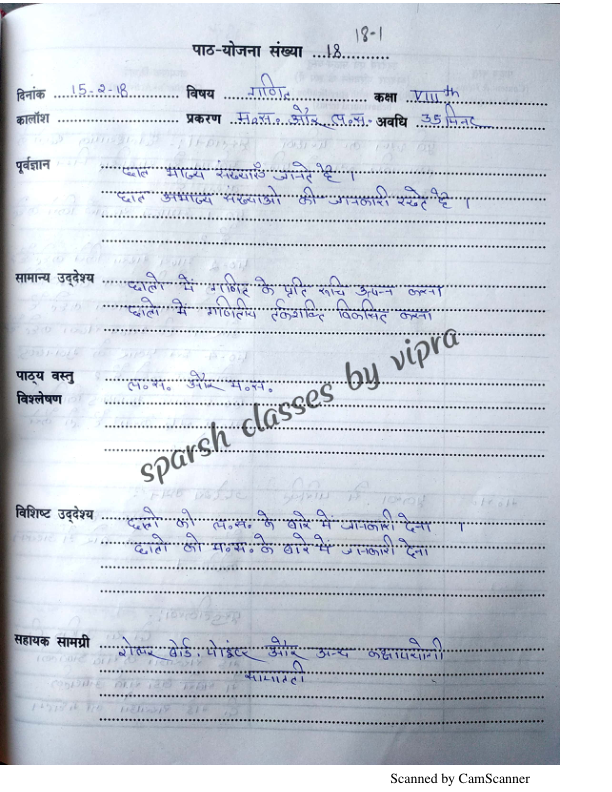 18-1
पाठ-योजना संख्या ...18...
दिनांक 15-2-18 विषय गणित कक्षा VIII th
कालाँश प्रकरण म॰स॰ और ल॰स॰ अवधि 35 मिनट
पूर्वज्ञान छात्र भाज्य संख्याएँ जानते है ।
छात्र अभाज्य संख्याओ की जानकारी रखते है ।
सामान्य उद्देश्य छात्रो में गणित के प्रति रूचि उत्पन्न करना
छात्रो में गणितीय तर्कशक्ति विकसित करना
पाठ्य वस्तु ल॰स॰ और म॰स॰
विश्लेषण
sparsh classes by vipra
विशिष्ट उद्देश्य छात्रो को ल॰स॰ के बारे में जानकारी देना ।
छात्रो को म॰स॰ के बारे में जानकारी देना
सहायक सामग्री रोलर बोर्ड, पोइंटर और अन्य कक्षापयोगी
सामग्री
Scanned by CamScanner